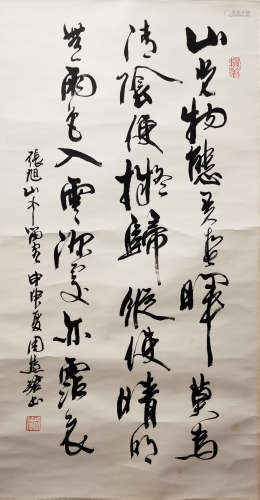 山光物態弄春暉莫為
清陰便擬歸縱使晴明
無雨色入雲深處亦霑衣
張旭山中留客 甲申夏周慧珺書